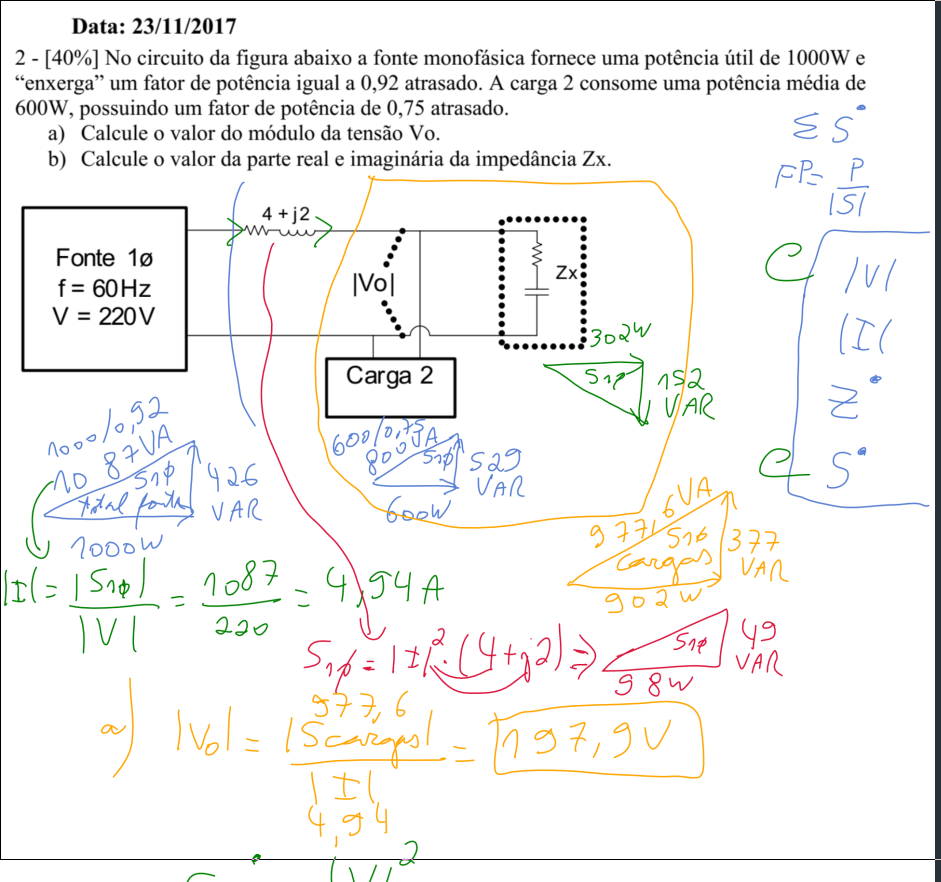 Data: 23/11/2017
2 - [40%] No circuito da figura abaixo a fonte monofásica fornece uma potência útil de 1000W e
“enxerga” um fator de potência igual a 0,92 atrasado. A carga 2 consome uma potência média de
600W, possuindo um fator de potência de 0,75 atrasado.
a) Calcule o valor do módulo da tensão Vo.
b) Calcule o valor da parte real e imaginária da impedância Zx.
Σ Ṡ
FP= P
|S|
Fonte 1ø
f = 60Hz
V = 220V
4 + j2
|Vo|
Zx
Carga 2
C
|V|
|I|
Ż
C
Ṡ
302W
S1ø
152
VAR
1000/0,92
1087VA
S1ø
total fonte
426
VAR
1000W
600/0,75
800VA
S1ø
529
VAR
600W
977,6VA
S1ø
cargas
377
VAR
902W
|I| = |S1ø| = 1087 = 4,94A
|V|
220
S1ø = |I|². (4+j2) ⇒
S1ø
49
VAR
98W
a) |Vo| = |Scargas| = 197,9V
977,6
|I|
4,94
|V|²